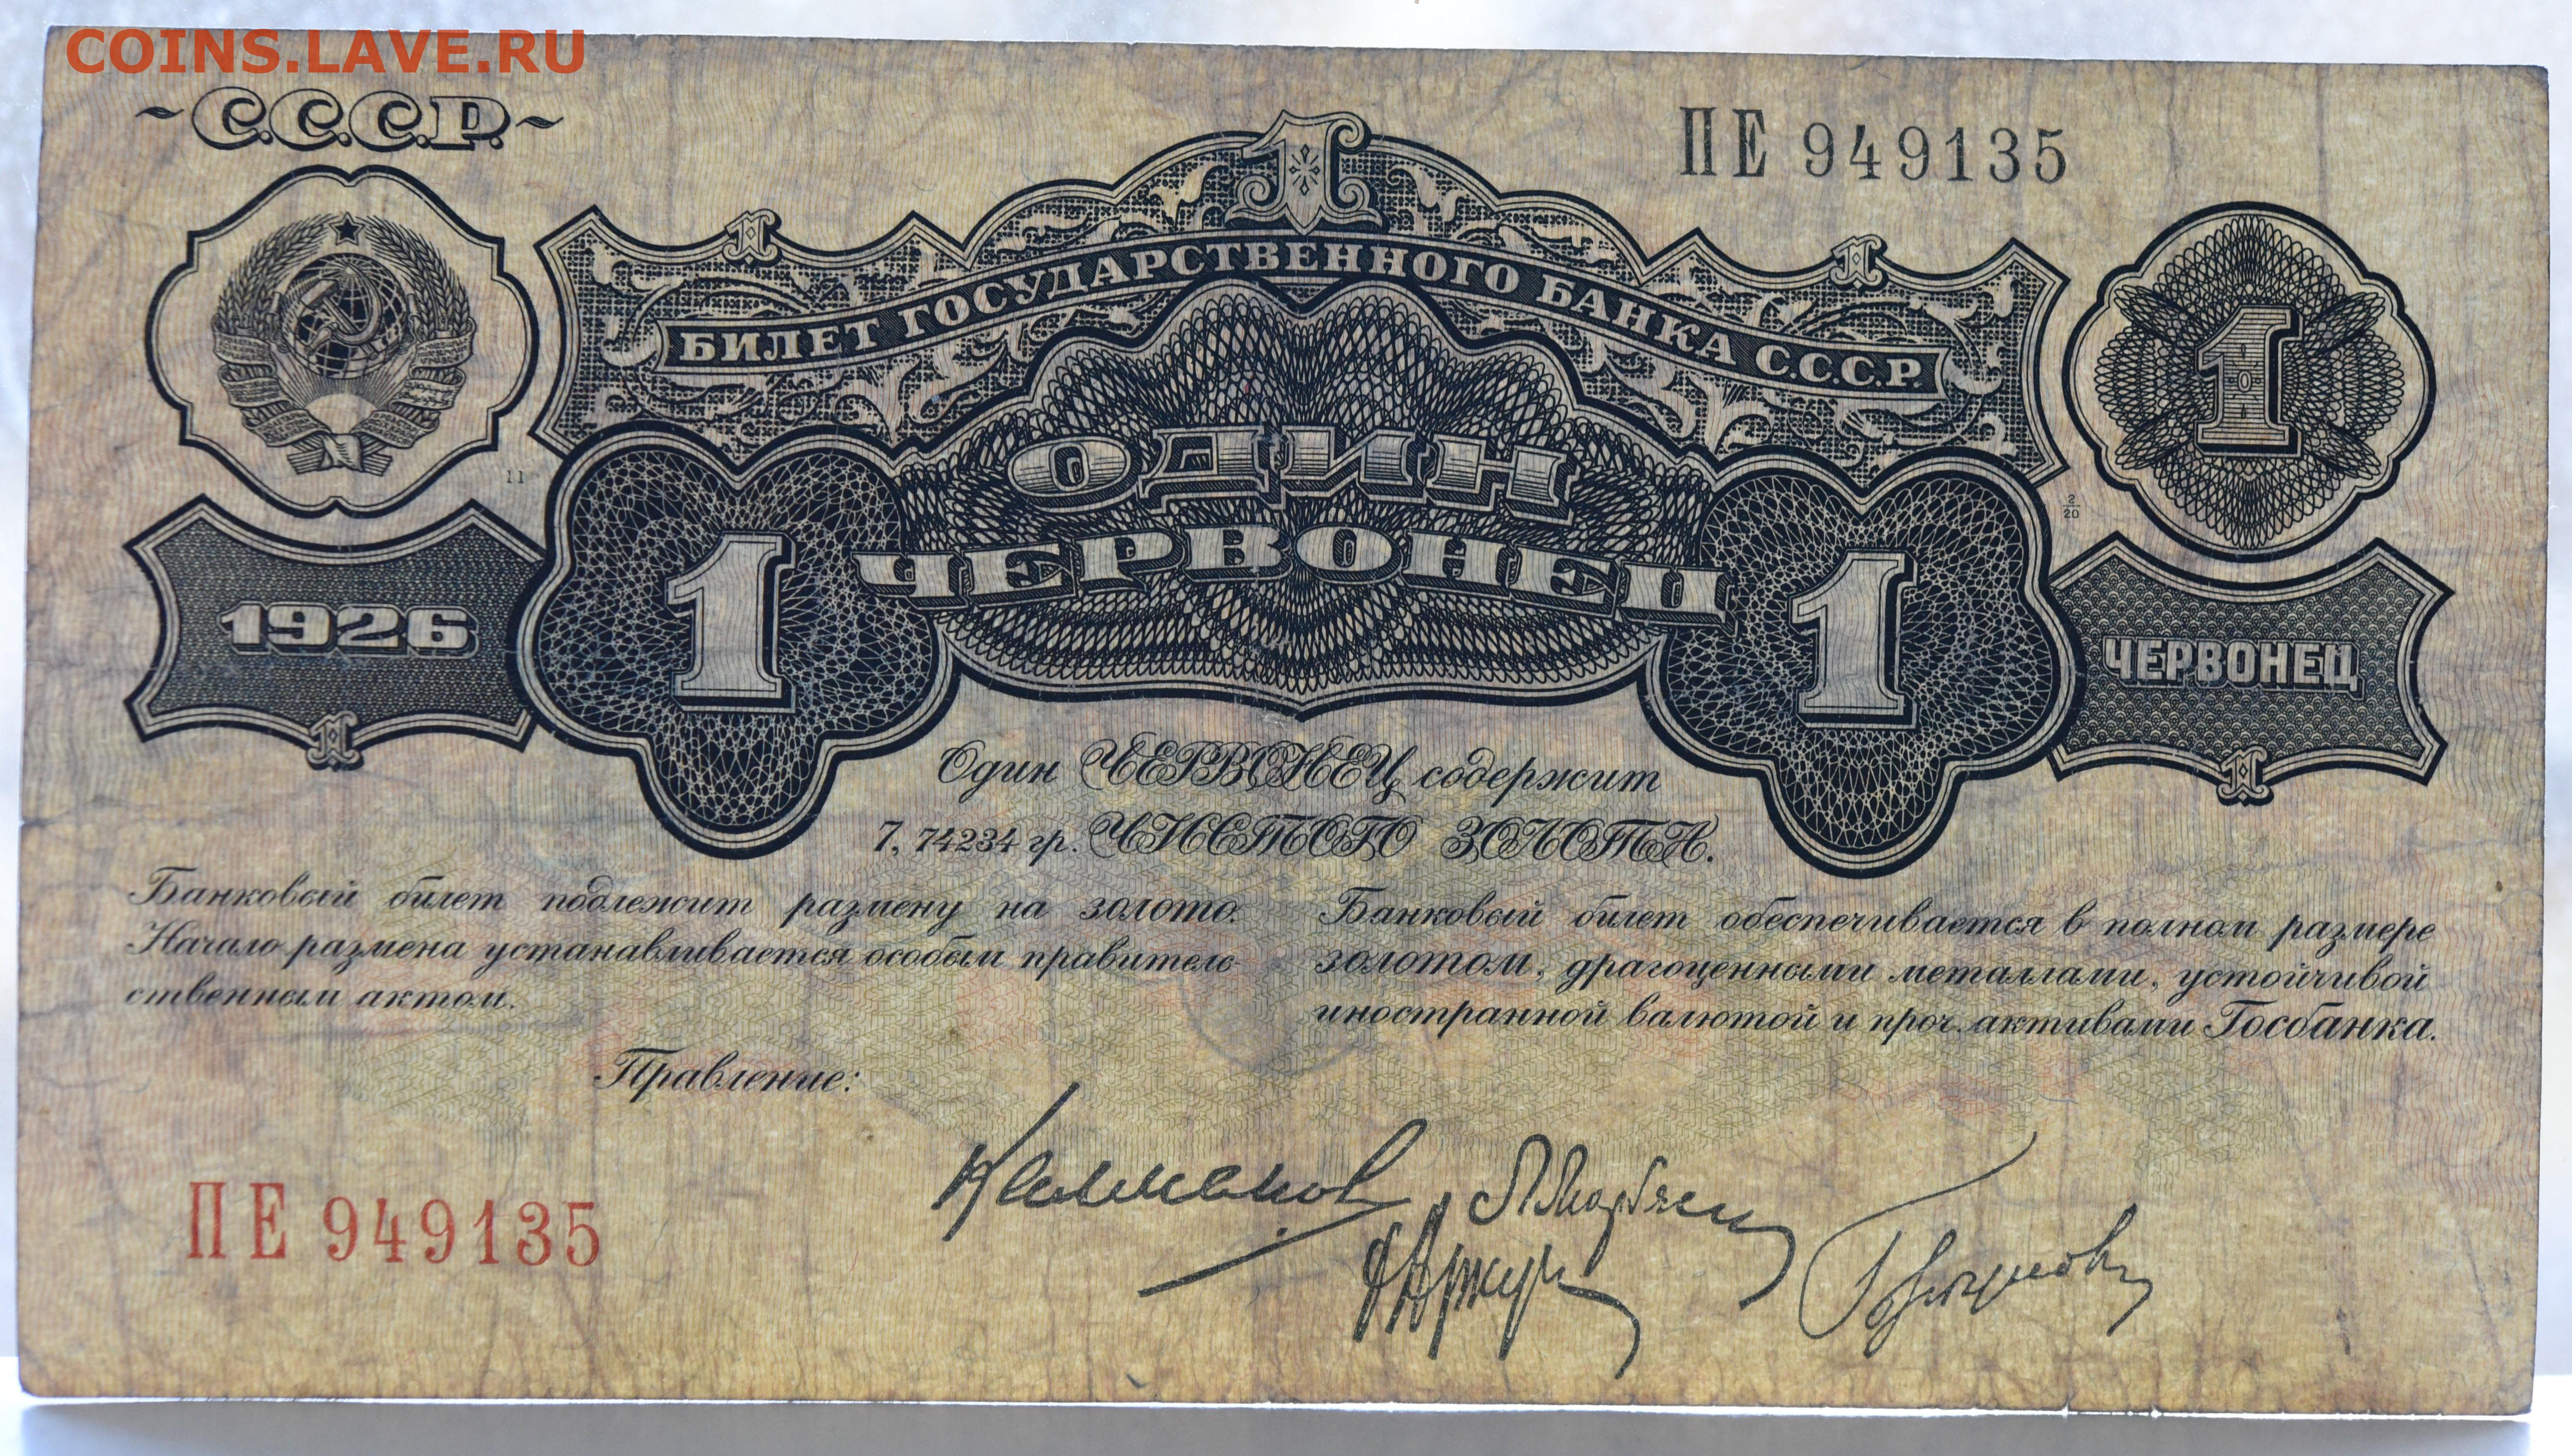 COINS.LAVE.RU
~С.С.С.Р.~
ПЕ 949135
1
1
1
БИЛЕТ ГОСУДАРСТВЕННОГО БАНКА С.С.С.Р.
1
ОДИН
11
2/20
ЧЕРВОНЕЦ
1
1
1926
ЧЕРВОНЕЦ
1
1
Один ЧЕРВОНЕЦ содержит
7, 74234 гр. ЧИСТОГО ЗОЛОТА.
Банковый билет подлежит размену на золото.
Начало размена устанавливается особым правитель
ственным актом.
Банковый билет обеспечивается в полном размере
золотом, драгоценными металлами, устойчивой
иностранной валютой и проч. активами Госбанка.
Правление:
ПЕ 949135